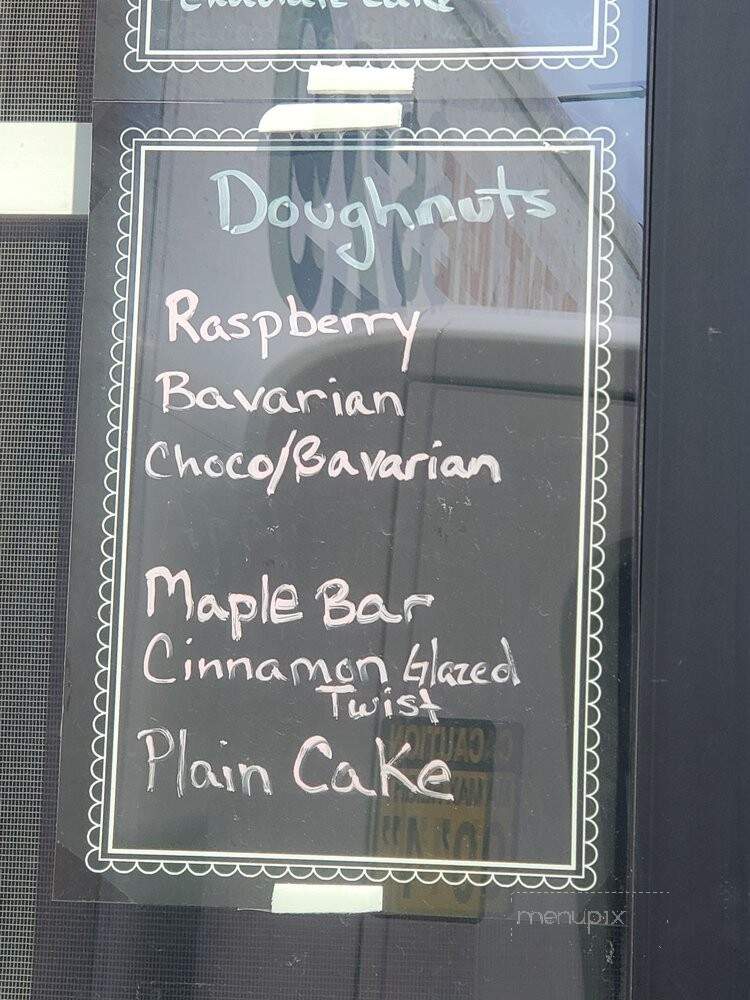 Chocolate Cake
Doughnuts
Raspberry
Bavarian
Choco/Bavarian
Maple Bar
Cinnamon Glazed
Twist
Plain Cake
CAUTION
menupix